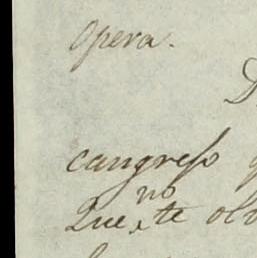 Opera.
D
cangrejo
Que no te olv